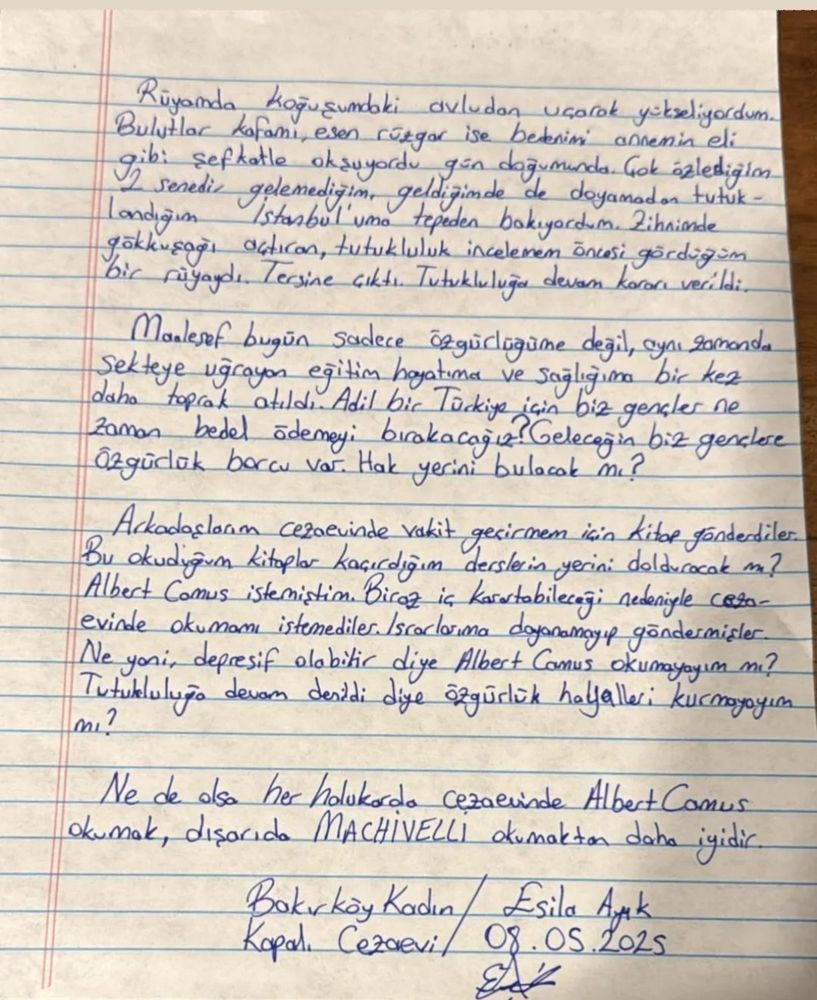 Rüyamda koğuşumdaki avludan uçarak yükseliyordum.
Bulutlar kafamı, esen rüzgar ise bedenimi annemin eli
gibi şefkatle okşuyordu gün doğumunda. Çok özlediğim
2 senedir gelemediğim, geldiğimde de doyamadan tutuk-
landığım İstanbul'uma tepeden bakıyordum. Zihnimde
gökkuşağı açtıran, tutukluluk incelemem öncesi gördüğüm
bir rüyaydı. Tersine çıktı. Tutukluluğa devam kararı verildi.
Maalesef bugün sadece özgürlüğüme değil, aynı zamanda
sekteye uğrayan eğitim hayatıma ve sağlığıma bir kez
daha toprak atıldı. Adil bir Türkiye için biz gençler ne
zaman bedel ödemeyi bırakacağız? Geleceğin biz gençlere
özgürlük borcu var. Hak yerini bulacak mı?
Arkadaşlarım cezaevinde vakit geçirmem için kitap gönderdiler.
Bu okuduğum kitaplar kaçırdığım derslerin yerini dolduracak mı?
Albert Camus istemiştim. Biraz iç karartabileceği nedeniyle ceza-
evinde okumamı istemediler. Israrlarıma dayanamayıp göndermişler.
Ne yani, depresif olabilir diye Albert Camus okumayayım mı?
Tutukluluğa devam denildi diye özgürlük hayalleri kurmayayım
mı?
Ne de olsa her halukarda cezaevinde Albert Camus
okumak, dışarıda MACHİVELLİ okumaktan daha iyidir.
Bakırköy Kadın / Esila Ayık
Kapalı Cezaevi / 08.05.2025